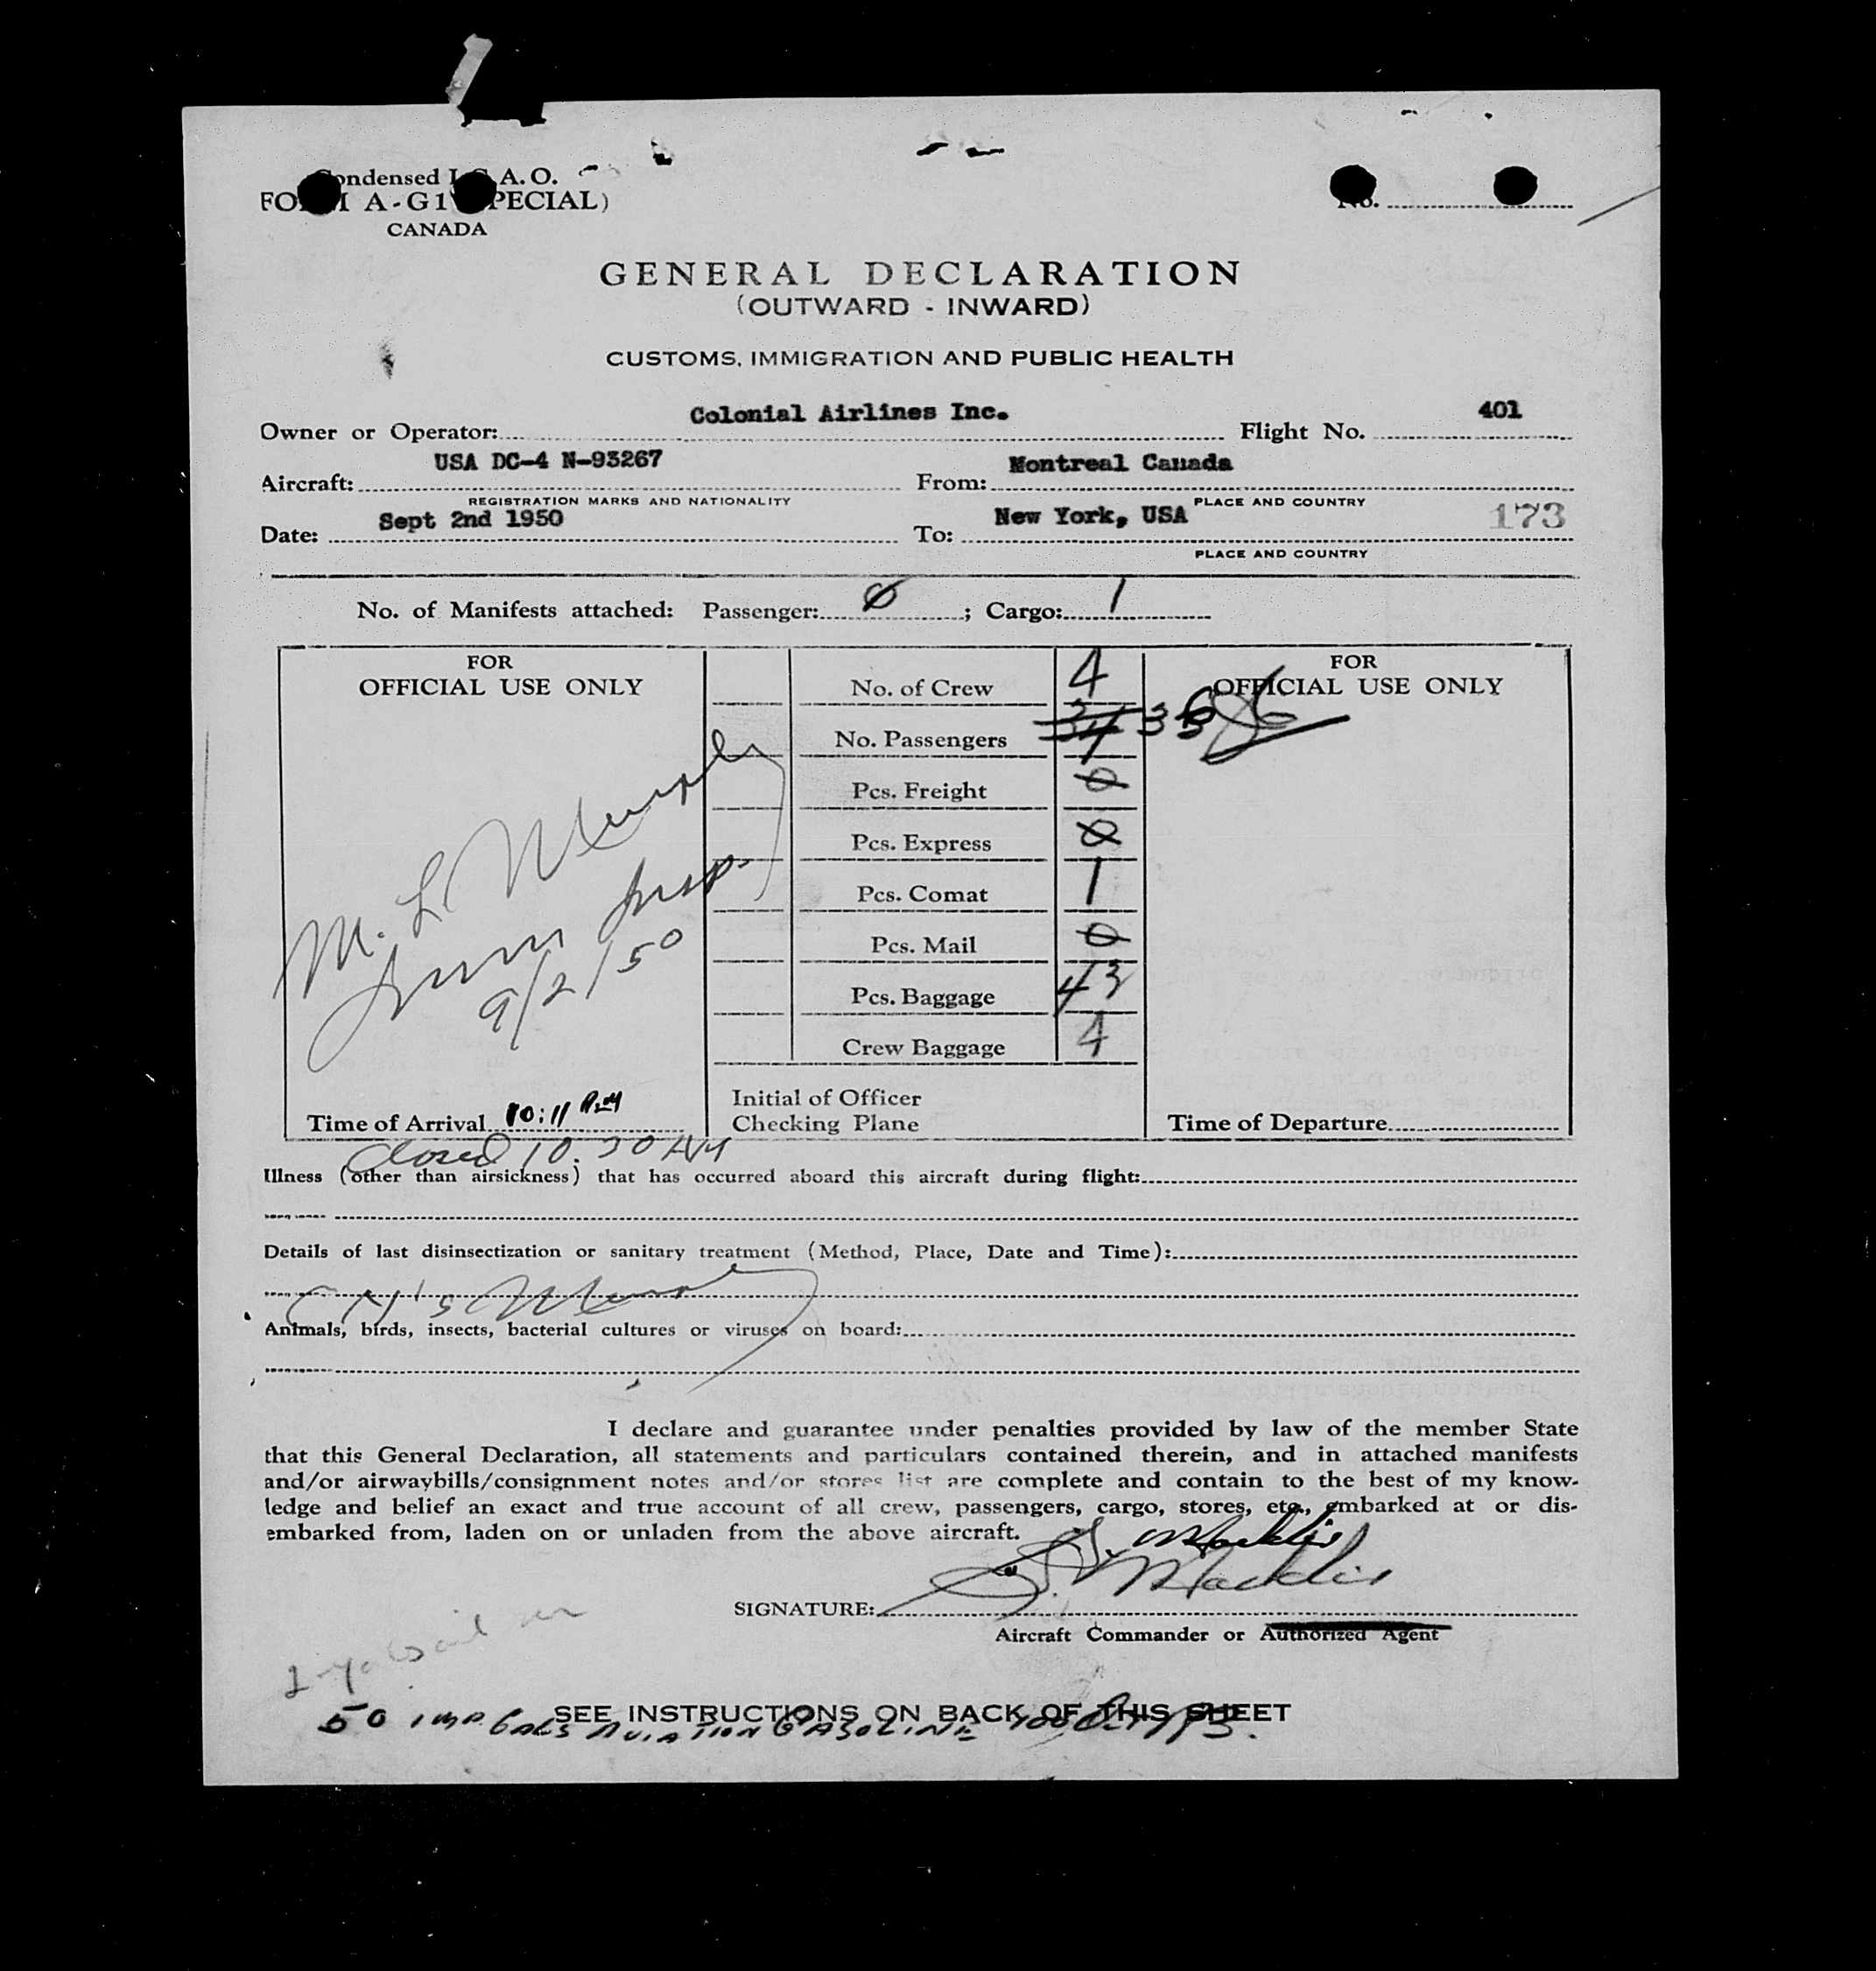 Condensed I.C.A.O.
FORM A-G1 (SPECIAL)
CANADA
No.
GENERAL DECLARATION
(OUTWARD - INWARD)
CUSTOMS, IMMIGRATION AND PUBLIC HEALTH
Owner or Operator: Colonial Airlines Inc. Flight No. 401
Aircraft: USA DC-4 N-93267 From: Montreal Canada
REGISTRATION MARKS AND NATIONALITY PLACE AND COUNTRY
Date: Sept 2nd 1950 To: New York, USA 173
PLACE AND COUNTRY
No. of Manifests attached: Passenger: 0 ; Cargo: 1
FOR
OFFICIAL USE ONLY
M. L. Murphy
Imm Insp.
9/2/50
Time of Arrival 10:11 PM
Closed 10.30 AM
No. of Crew 4
No. Passengers 34
Pcs. Freight 0
Pcs. Express 0
Pcs. Comat 1
Pcs. Mail 0
Pcs. Baggage 43
Crew Baggage 4
Initial of Officer
Checking Plane
FOR
OFFICIAL USE ONLY
Time of Departure
Illness (other than airsickness) that has occurred aboard this aircraft during flight:
Details of last disinsectization or sanitary treatment (Method, Place, Date and Time):
Murphy
Animals, birds, insects, bacterial cultures or viruses on board:
I declare and guarantee under penalties provided by law of the member State
that this General Declaration, all statements and particulars contained therein, and in attached manifests
and/or airwaybills/consignment notes and/or stores list are complete and contain to the best of my know-
ledge and belief an exact and true account of all crew, passengers, cargo, stores, etc., embarked at or dis-
embarked from, laden on or unladen from the above aircraft.
SIGNATURE:
Aircraft Commander or Authorized Agent
SEE INSTRUCTIONS ON BACK OF THIS SHEET
50 IMP. GALS AVIATION GASOLINE 100